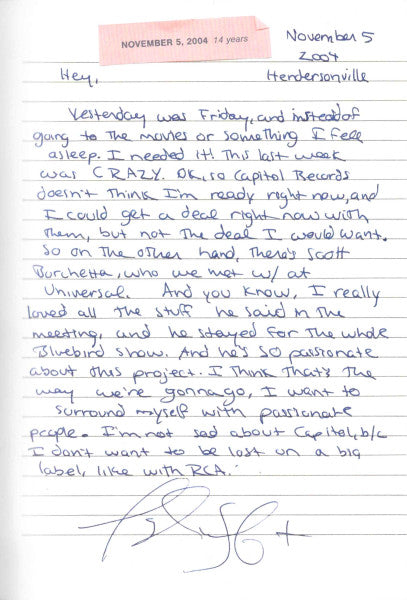 NOVEMBER 5, 2004 14 years
November 5
2004
Hey,
Hendersonville
Yesterday was Friday, and instead of
going to the movies or something I fell
asleep. I needed it! This last week
was CRAZY. OK, so Capitol Records
doesn't think I'm ready right now, and
I could get a deal right now with
them, but not the deal I would want.
So on the other hand, there's Scott
Borchetta, who we met w/ at
Universal. And you know, I really
loved all the stuff he said in the
meeting, and he stayed for the whole
Bluebird show. And he's SO passionate
about this project. I think that's the
way we're gonna go, I want to
surround myself with passionate
people. I'm not sad about Capitol, b/c
I don't want to be lost on a big
label, like with RCA.